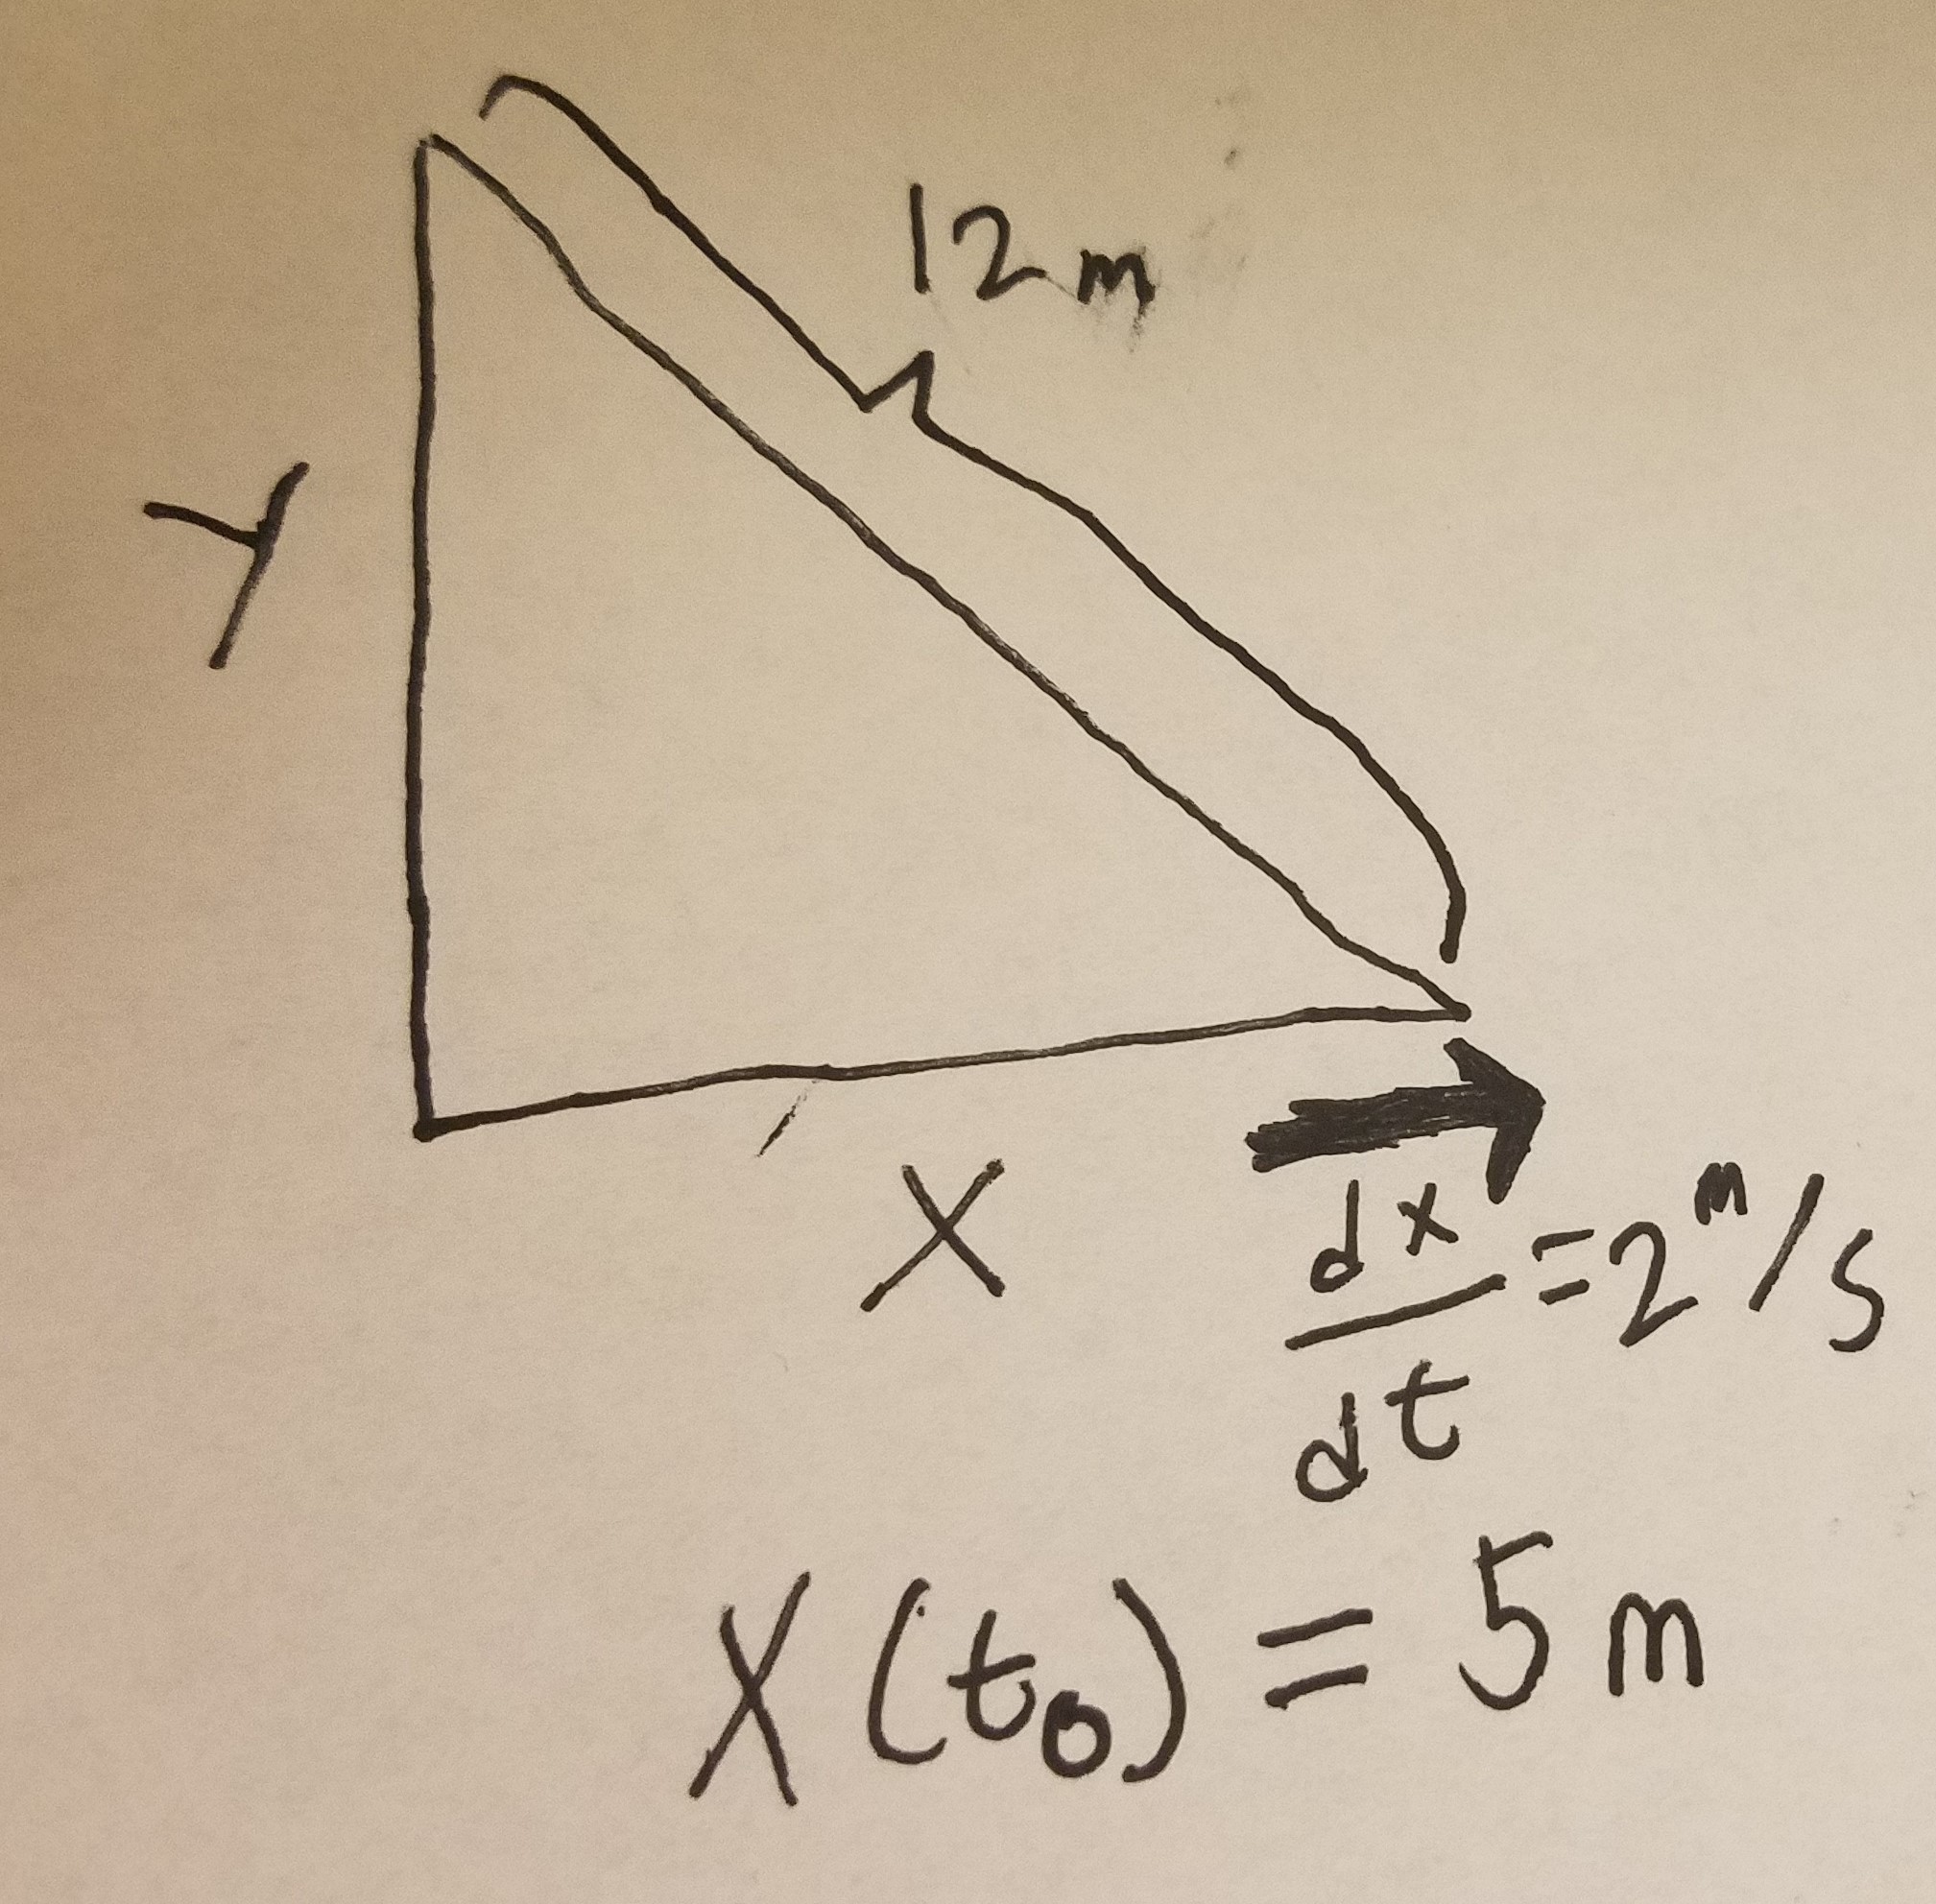 12 m
Y
X
dx/dt = 2 m/s
X(t₀) = 5 m